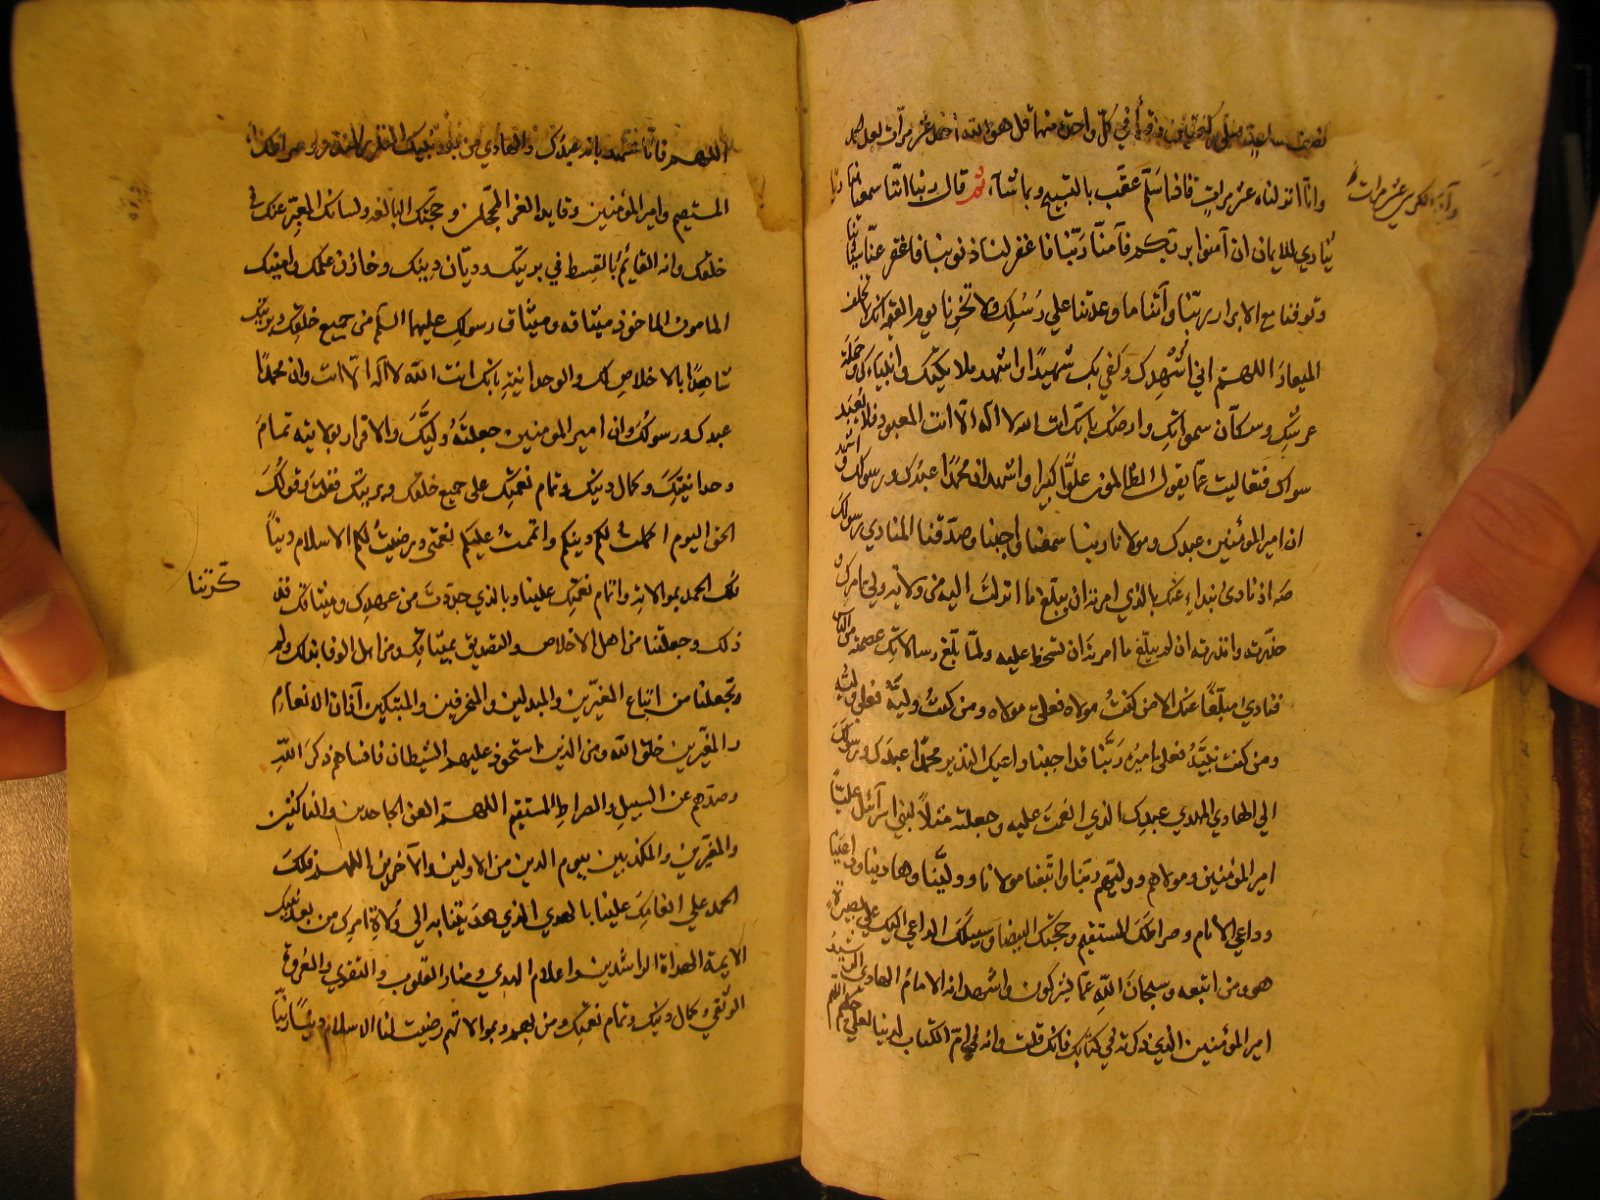 نصف ساعة صلى ركعتين يقرأ في كل واحدة منها قل هو الله احد عشر مرات بعد الحمد
وانا انزلناه عشر مرات فاذا سلم عقب بالتسبيح وبما شاء ثم قال ربنا اننا سمعنا مناديا
ينادي للايمان ان آمنوا بربكم فآمنا ربنا فاغفر لنا ذنوبنا فاغفر عنا سيئاتنا
وتوفنا مع الابرار ربنا وآتنا ما وعدتنا على رسلك ولا تخزنا يوم القيمة انك لا تخلف
الميعاد اللهم اني اشهدك وكفى بك شهيدا واشهد ملائكتك وانبياءك وحملة
عرشك وسكان سمواتك وارضك بانك انت الله لا اله الا انت المعبود فلا يعبد
سواك فتعاليت عما يقول الظالمون علوا كبيرا واشهد ان محمدا عبدك ورسولك واشهد
ان امير المؤمنين عبدك ومولانا ربنا سمعنا واجبنا وصدقنا المنادي رسولك
ص اذ نادى بنداء عنك بالذي امرته ان يبلغ ما انزلت اليه من ولاية ولي امرك و
حذرته وانذرته ان لم يبلغ ما امرته ان تسخط عليه ولما بلغ رسالاتك عصمته من الناس
فنادى مبلغا عنك الا من كنت مولاه فعلي مولاه ومن كنت وليه فعلي وليه
ومن كنت نبيه فعلي اميره ربنا قد اجبنا داعيك النذير محمدا عبدك ورسولك
الى الهادي المهدي عبدك الذي انعمت عليه وجعلته مثلا لبني اسرائيل عليا
امير المؤمنين ومولاهم ووليهم ربنا واتبعنا مولانا وولينا وهادينا وداعينا
وداعي الانام وصراطك المستقيم وحجتك البيضا وسبيلك الداعي اليك على بصيرة
هو ومن اتبعه وسبحان الله عما يشركون واشهد انه الامام الهادي الرشيد
امير المؤمنين الذي ذكرته في كتابك فانك قلت وانه في ام الكتاب لدينا لعلي حكيم اللهم
وآية الكرسي عشر مرات
اللهم فانا نشهد بانه عبدك والهادي من بعد نبيك النذير المنذر وصراطك
المستقيم وامير المؤمنين وقايد الغر المحجلين وحجتك البالغه ولسانك المعبر عنك في
خلقك وانه القائم بالقسط في بريتك وديان دينك وخازن علمك وامينك
المامون الماخوذ ميثاقه وميثاق رسولك عليهما السلم من جميع خلقك وبريتك
شاهدا بالاخلاص لك والوحدانية بانك انت الله لا اله الا انت وان محمدا
عبدك ورسولك وان امير المؤمنين جعلته وليك والاقرار بولايته تمام
وحدانيتك وكمال دينك وتمام نعمتك على جميع خلقك وبريتك فقلت وقولك
الحق اليوم اكملت لكم دينكم واتممت عليكم نعمتي ورضيت لكم الاسلام دينا
فلك الحمد بموالاته واتمام نعمتك علينا وبالذي جددت من عهدك وميثاقك
ذلك وجعلتنا من اهل الاخلاص والتصديق بميثاقك ومن اهل الوفا بذلك ولم
وتجعلنا من اتباع المغيرين والمبدلين والمنحرفين والمبتكين آذان الانعام
والمغيرين خلق الله ومن الذين استحوذ عليهم الشيطان فانساهم ذكر الله
وصدهم عن السبيل والصراط المستقيم اللهم العن الجاحدين والناكثين
والمغيرين والمكذبين بيوم الدين من الاولين والآخرين اللهم فلك
الحمد على انعامك علينا بالهدى الذي هديتنا به الى ولاة امرك من بعد نبيك
الايمة الهداة الراشدين واعلام الهدى ومنار القلوب والتقوى والعروة
الوثقى وكمال دينك وتمام نعمتك ومن بهم وبموالاتهم رضيت لنا الاسلام دينا ربنا
ذكرتنا